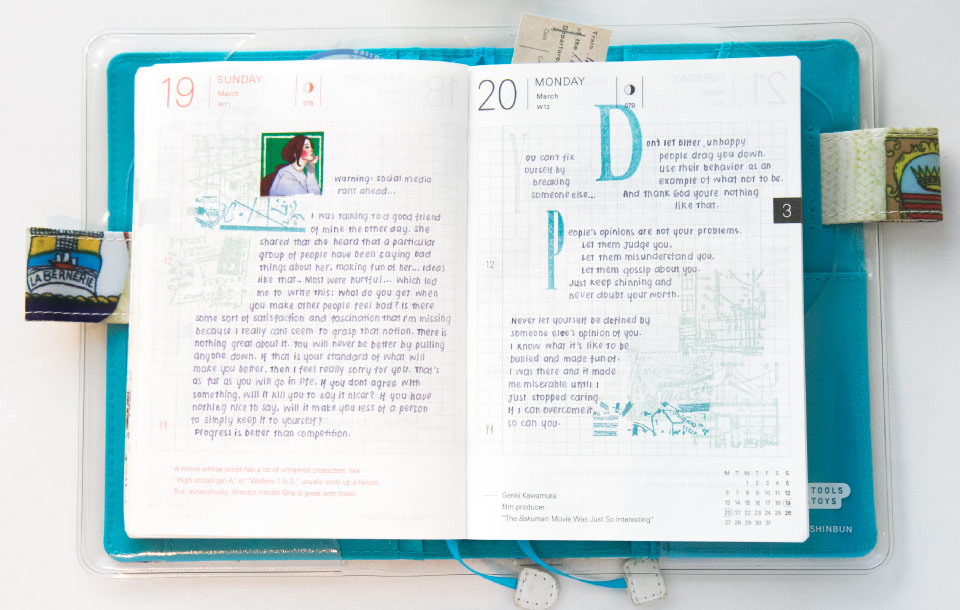 19
SUNDAY
March
W11
079
warning: social media
rant ahead...
I was talking to a good friend
of mine the other day. She
shared that she heard that a particular
group of people have been saying bad
things about her, making fun of her... ideas
like that.. Most were hurtful... which led
me to write this: What do you get when
you make other people feel bad? Is there
some sort of satisfaction and fascination that i'm missing
because I really cant seem to grasp that notion. There is
nothing great about it. You will never be better by pulling
anyone down. If that is your standard of what will
make you better, then I feel really sorry for you. That's
as far as you will go in life. If you dont agree with
something, will it kill you to say it nicer? If you have
nothing nice to say, will it make you less of a person
to simply keep it to yourself?
Progress is better than competition.
12
A movie whose script has a lot of unnamed characters, like
"High school girl A" or "Waiters 1 & 2," usually ends up a failure.
But, miraculously, director Hitoshi One is great with these.
20
MONDAY
March
W12
079
You can't fix
yourself by
breaking
someone else...
Don't let bitter, unhappy
people drag you down.
Use their behavior as an
example of what not to be.
And thank God you're nothing
like that.
3
People's opinions are not your problems.
Let them judge you,
Let them misunderstand you,
Let them gossip about you.
Just keep shinning and
never doubt your worth.
12
Never let yourself be defined by
someone else's opinion of you.
I know what it's like to be
bullied and made fun of.
I was there and it made
me miserable until I
just stopped caring.
If I can overcome it,
so can you.
Genki Kawamura
film producer
"The Bakuman Movie Was Just So Interesting"
M T W T F S S
1 2 3 4 5
6 7 8 9 10 11 12
13 14 15 16 17 18 19
20 21 22 23 24 25 26
27 28 29 30 31
LA BERNERIE
Train
of the
Departure
TOOLS
TOYS
SHINBUN